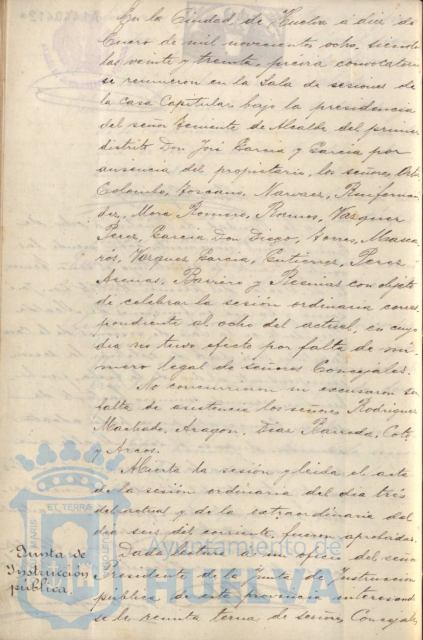 En la Ciudad de Huelva a diez de
Enero de mil novecientos ocho, siendo
las veinte y treinta, previa convocatoria
se reunieron en la Sala de sesiones de
la Casa Capitular, bajo la presidencia
del señor Teniente de Alcalde del primer
distrito Don José García y García por
ausencia del propietario, los señores
Colombo, Toscano, Narvaez,
Mora Romero, Ramos, Vazquez
Perez, García Don Diego, Torres, Masca
ros, Vazquez García, Gutierrez, Perez
y Resinas con objeto
de celebrar la sesión ordinaria corres
pondiente al ocho del actual, en cuyo
dia no tuvo efecto por falta de nú
mero legal de señores Concejales.
No concurrieron ni excusaron su
falta de asistencia los señores Rodriguez
Machado, Aragón, Diaz Barreda, Coto
y Arcos.
Abierta la sesión y leida el acta
de la sesión ordinaria del dia tres
del actual y de la extraordinaria del
dia seis del corriente, fueron aprobadas.
Junta de
Instrucción
pública.
Dada lectura de un oficio del señor
Presidente de la Junta de Instrucción
pública de esta provincia interesando
se le remita terna de señores Concejales
Ayuntamiento de
HUELVA